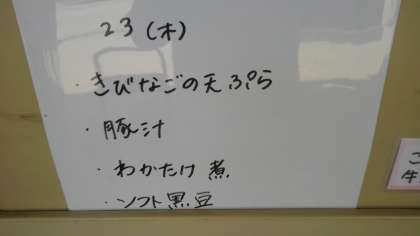 23(木)
・きびなごの天ぷら
・豚汁
・わかたけ煮
・ソフト黒豆
こ
牛